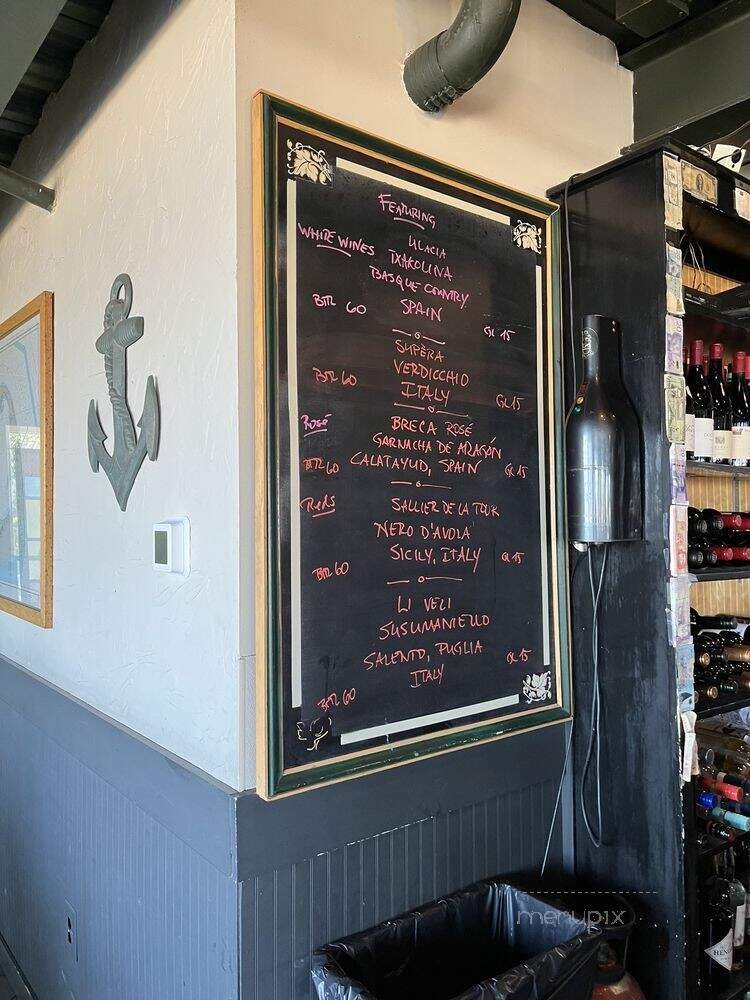 FEATURING
WHITE WINES
ULACIA
TXAKOLINA
BASQUE COUNTRY
SPAIN
BTL 60
GL 15
SUPÈRA
VERDICCHIO
ITALY
BTL 60
GL 15
ROSÉ
BRECA ROSÉ
GARNACHA DE ARAGÓN
CALATAYUD, SPAIN
BTL 60
GL 15
REDS
SALLIER DE LA TOUR
NERO D'AVOLA
SICILY, ITALY
BTL 60
GL 15
LI VELI
SUSUMANIELLO
SALENTO, PUGLIA
ITALY
BTL 60
GL 15
menupix